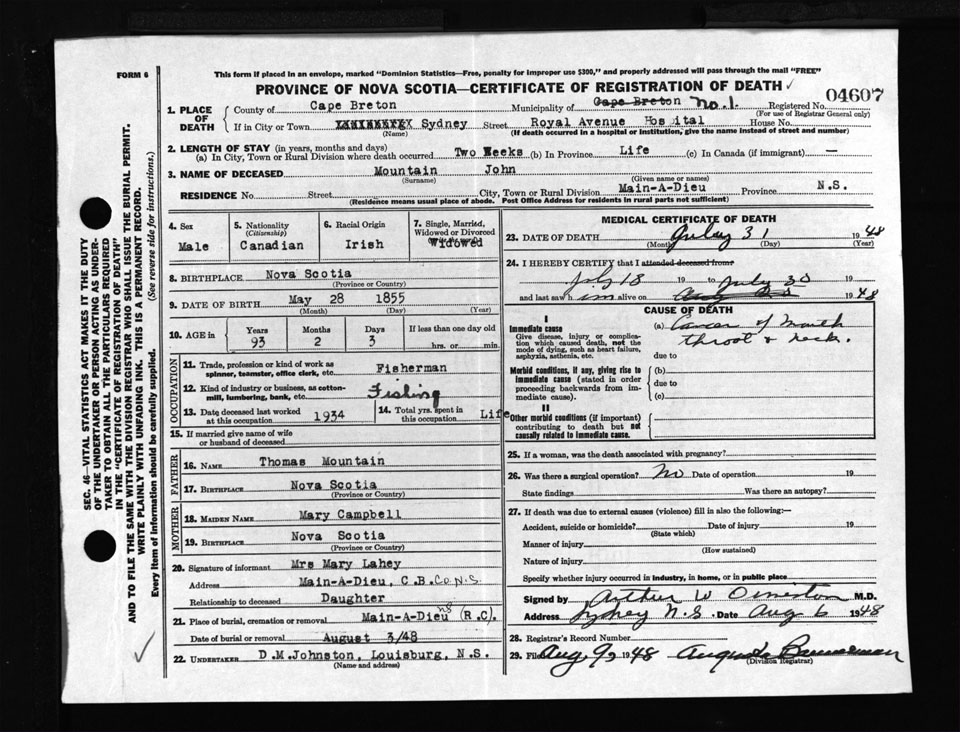 This form if placed in an envelope, marked "Dominion Statistics—Free, penalty for improper use $300," and properly addressed will pass through the mail "FREE"
FORM 6
PROVINCE OF NOVA SCOTIA—CERTIFICATE OF REGISTRATION OF DEATH ✓
04607
1. PLACE OF DEATH County of Cape Breton Municipality of Cape Breton No. 1. Registered No.
(For use of Registrar General only)
If in City or Town Sydney Street Royal Avenue Hos ital House No.
(Name) (If death occurred in a hospital or institution, give the name instead of street and number)
2. LENGTH OF STAY (in years, months and days)
(a) In City, Town or Rural Division where death occurred Two Weeks (b) In Province Life (c) In Canada (if immigrant) —
3. NAME OF DECEASED Mountain John
(Surname) (Given name or names)
RESIDENCE No. Street City, Town or Rural Division Main-A-Dieu Province N.S.
(Residence means usual place of abode. Post Office Address for residents in rural parts not sufficient)
4. Sex 5. Nationality 6. Racial Origin 7. Single, Married, Widowed or Divorced
(Citizenship)
Male Canadian Irish Widowed
8. BIRTHPLACE Nova Scotia
(Province or Country)
9. DATE OF BIRTH May 28 1855
(Month) (Day) (Year)
10. AGE in Years Months Days If less than one day old
93 2 3 hrs. or min.
OCCUPATION
11. Trade, profession or kind of work as spinner, teamster, office clerk, etc. Fisherman
12. Kind of industry or business, as cotton-mill, lumbering, bank, etc. Fishing
13. Date deceased last worked at this occupation 1934 14. Total yrs. spent in this occupation Life
15. If married give name of wife or husband of deceased
FATHER
16. NAME Thomas Mountain
17. BIRTHPLACE Nova Scotia
(Province or Country)
MOTHER
18. MAIDEN NAME Mary Campbell
19. BIRTHPLACE Nova Scotia
(Province or Country)
20. Signature of informant Mrs Mary Lahey
Address Main-A-Dieu, C.B. Co. N.S.
Relationship to deceased Daughter
21. Place of burial, cremation or removal Main-A-Dieu NS (R.C).
Date of burial or removal August 3/48
22. UNDERTAKER D.M.Johnston, Louisburg, N.S.
(Name and address)
MEDICAL CERTIFICATE OF DEATH
23. DATE OF DEATH July 31 1948
(Month) (Day) (Year)
24. I HEREBY CERTIFY that I attended deceased from
July 18 19 to July 30 19
and last saw him alive on 1948
CAUSE OF DEATH
I
Immediate cause
Give disease, injury or complication which caused death, not the mode of dying, such as heart failure, asphyxia, asthenia, etc.
(a) Cancer of mouth
throat & neck.
due to
Morbid conditions, if any, giving rise to immediate cause (stated in order proceeding backwards from immediate cause).
(b)
due to
(c)
II
Other morbid conditions (if important) contributing to death but not causally related to immediate cause.
25. If a woman, was the death associated with pregnancy?
26. Was there a surgical operation? No Date of operation 19
State findings Was there an autopsy?
27. If death was due to external causes (violence) fill in also the following:—
Accident, suicide or homicide? Date of injury 19
(State which)
Manner of injury
(How sustained)
Nature of injury
Specify whether injury occurred in industry, in home, or in public place
Signed by Arthur W Ormiston M.D.
Address Sydney N.S. Date Aug 6 1948
28. Registrar's Record Number
29. Filed Aug 9, 1948 Augusta Bannerman
(Division Registrar)
SEC. 46—VITAL STATISTICS ACT MAKES IT THE DUTY
OF THE UNDERTAKER OR PERSON ACTING AS UNDERTAKER TO OBTAIN ALL THE PARTICULARS REQUIRED
IN THE "CERTIFICATE OF REGISTRATION OF DEATH"
AND TO FILE THE SAME WITH THE DIVISION REGISTRAR WHO SHALL ISSUE THE BURIAL PERMIT.
WRITE PLAINLY WITH UNFADING INK. THIS IS A PERMANENT RECORD.
Every item of information should be carefully supplied. (See reverse side for instructions.)